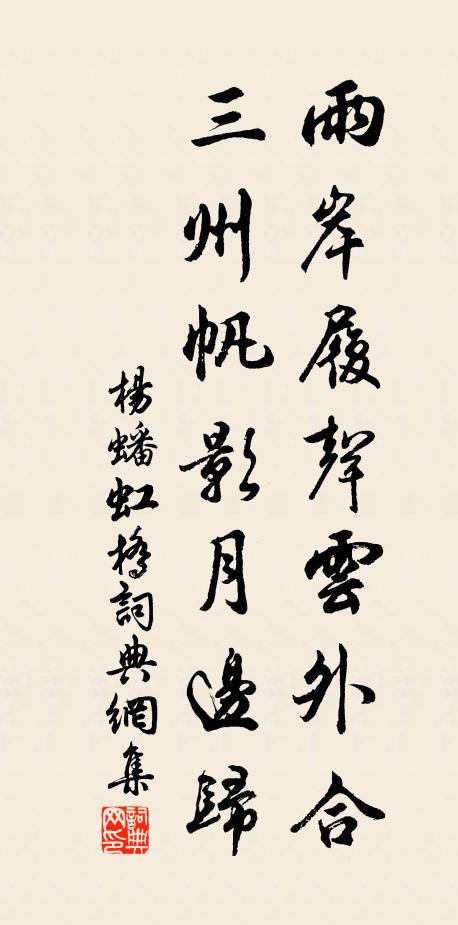 兩岸履聲雲外合
三州帆影月邊歸
楊蟠虹橋詞典網集
詞典網印